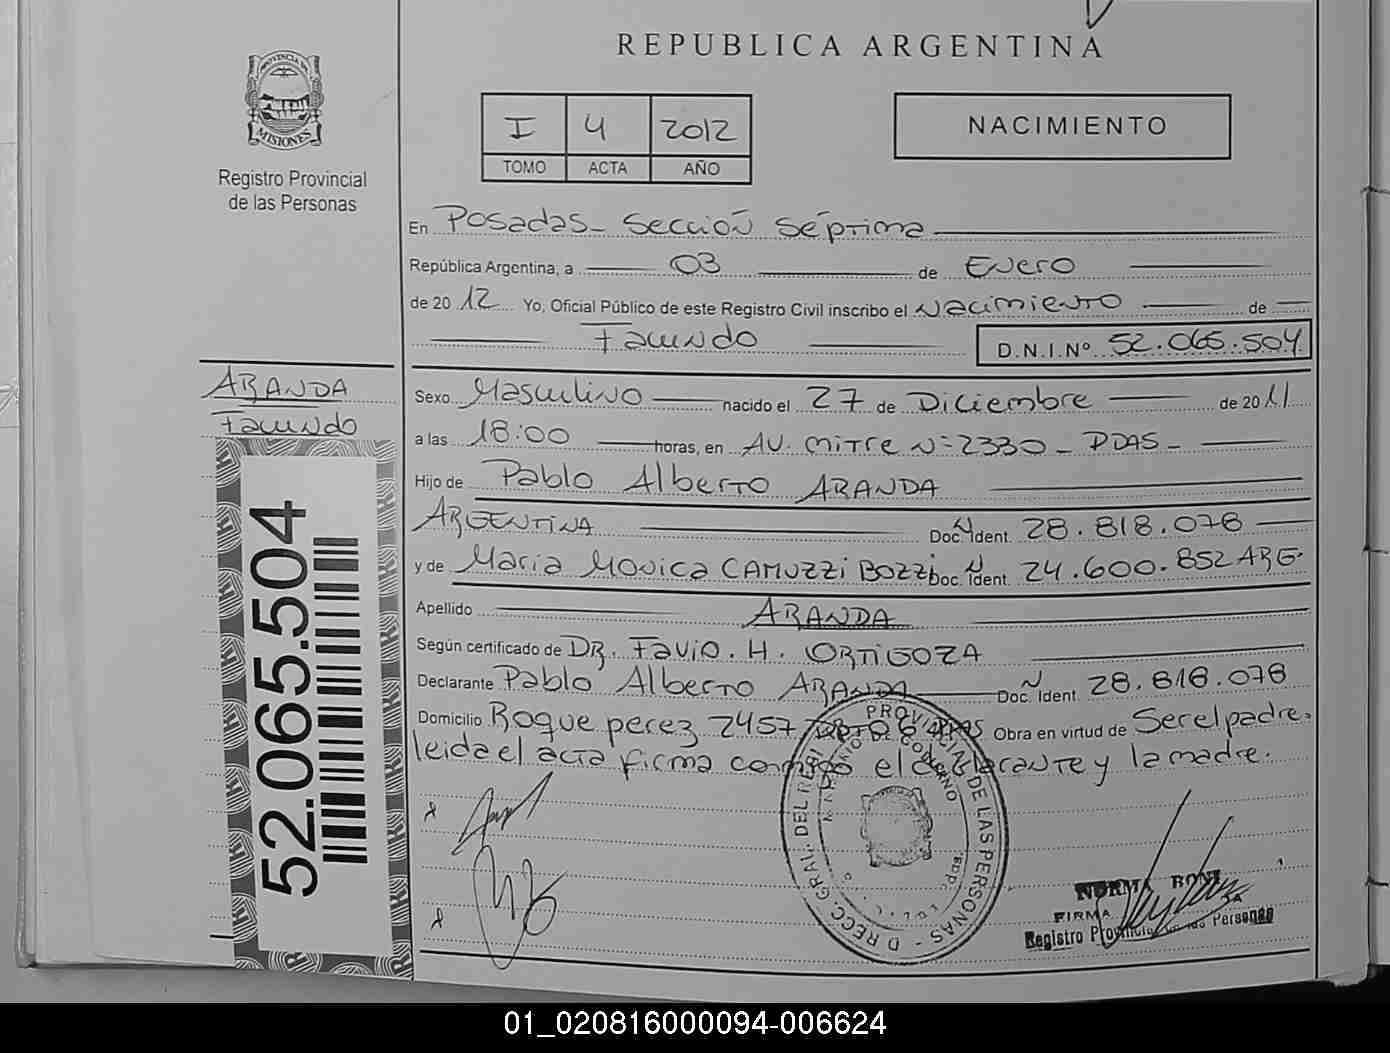 REPUBLICA ARGENTINA
PROVINCIA DE
MISIONES
Registro Provincial
de las Personas
I 4 2012
TOMO ACTA AÑO
NACIMIENTO
En Posadas - Sección Séptima
República Argentina, a 03 de Enero
de 2012 Yo, Oficial Público de este Registro Civil inscribo el Nacimiento de
Facundo D.N.I.Nº 52.065.504
ARANDA
Facundo
Sexo Masculino nacido el 27 de Diciembre de 2011
a las 18:00 horas, en AV. Mitre N= 2330 - PDAS -
Hijo de Pablo Alberto ARANDA
ARGENTINA Doc. Ident. 28.818.078
y de Maria Monica CAMUZZi BOZZi Doc. Ident. 24.600.852 ARG.
Apellido ARANDA
Según certificado de DR. Favio. H. ORTIGOZA
Declarante Pablo Alberto ARANDA Doc. Ident. 28.818.078
Domicilio Roque perez 2457 Obra en virtud de Ser el padre.
leida el acta firma conmigo el declarante y la madre.
52.065.504
PROVINCIAL DE LAS PERSONAS - DIRECC. GRAL. DEL REG.
MINISTERIO DE GOBIERNO
NORMA BONI
FIRMA
Registro Provincial de las Personas
01_020816000094-006624